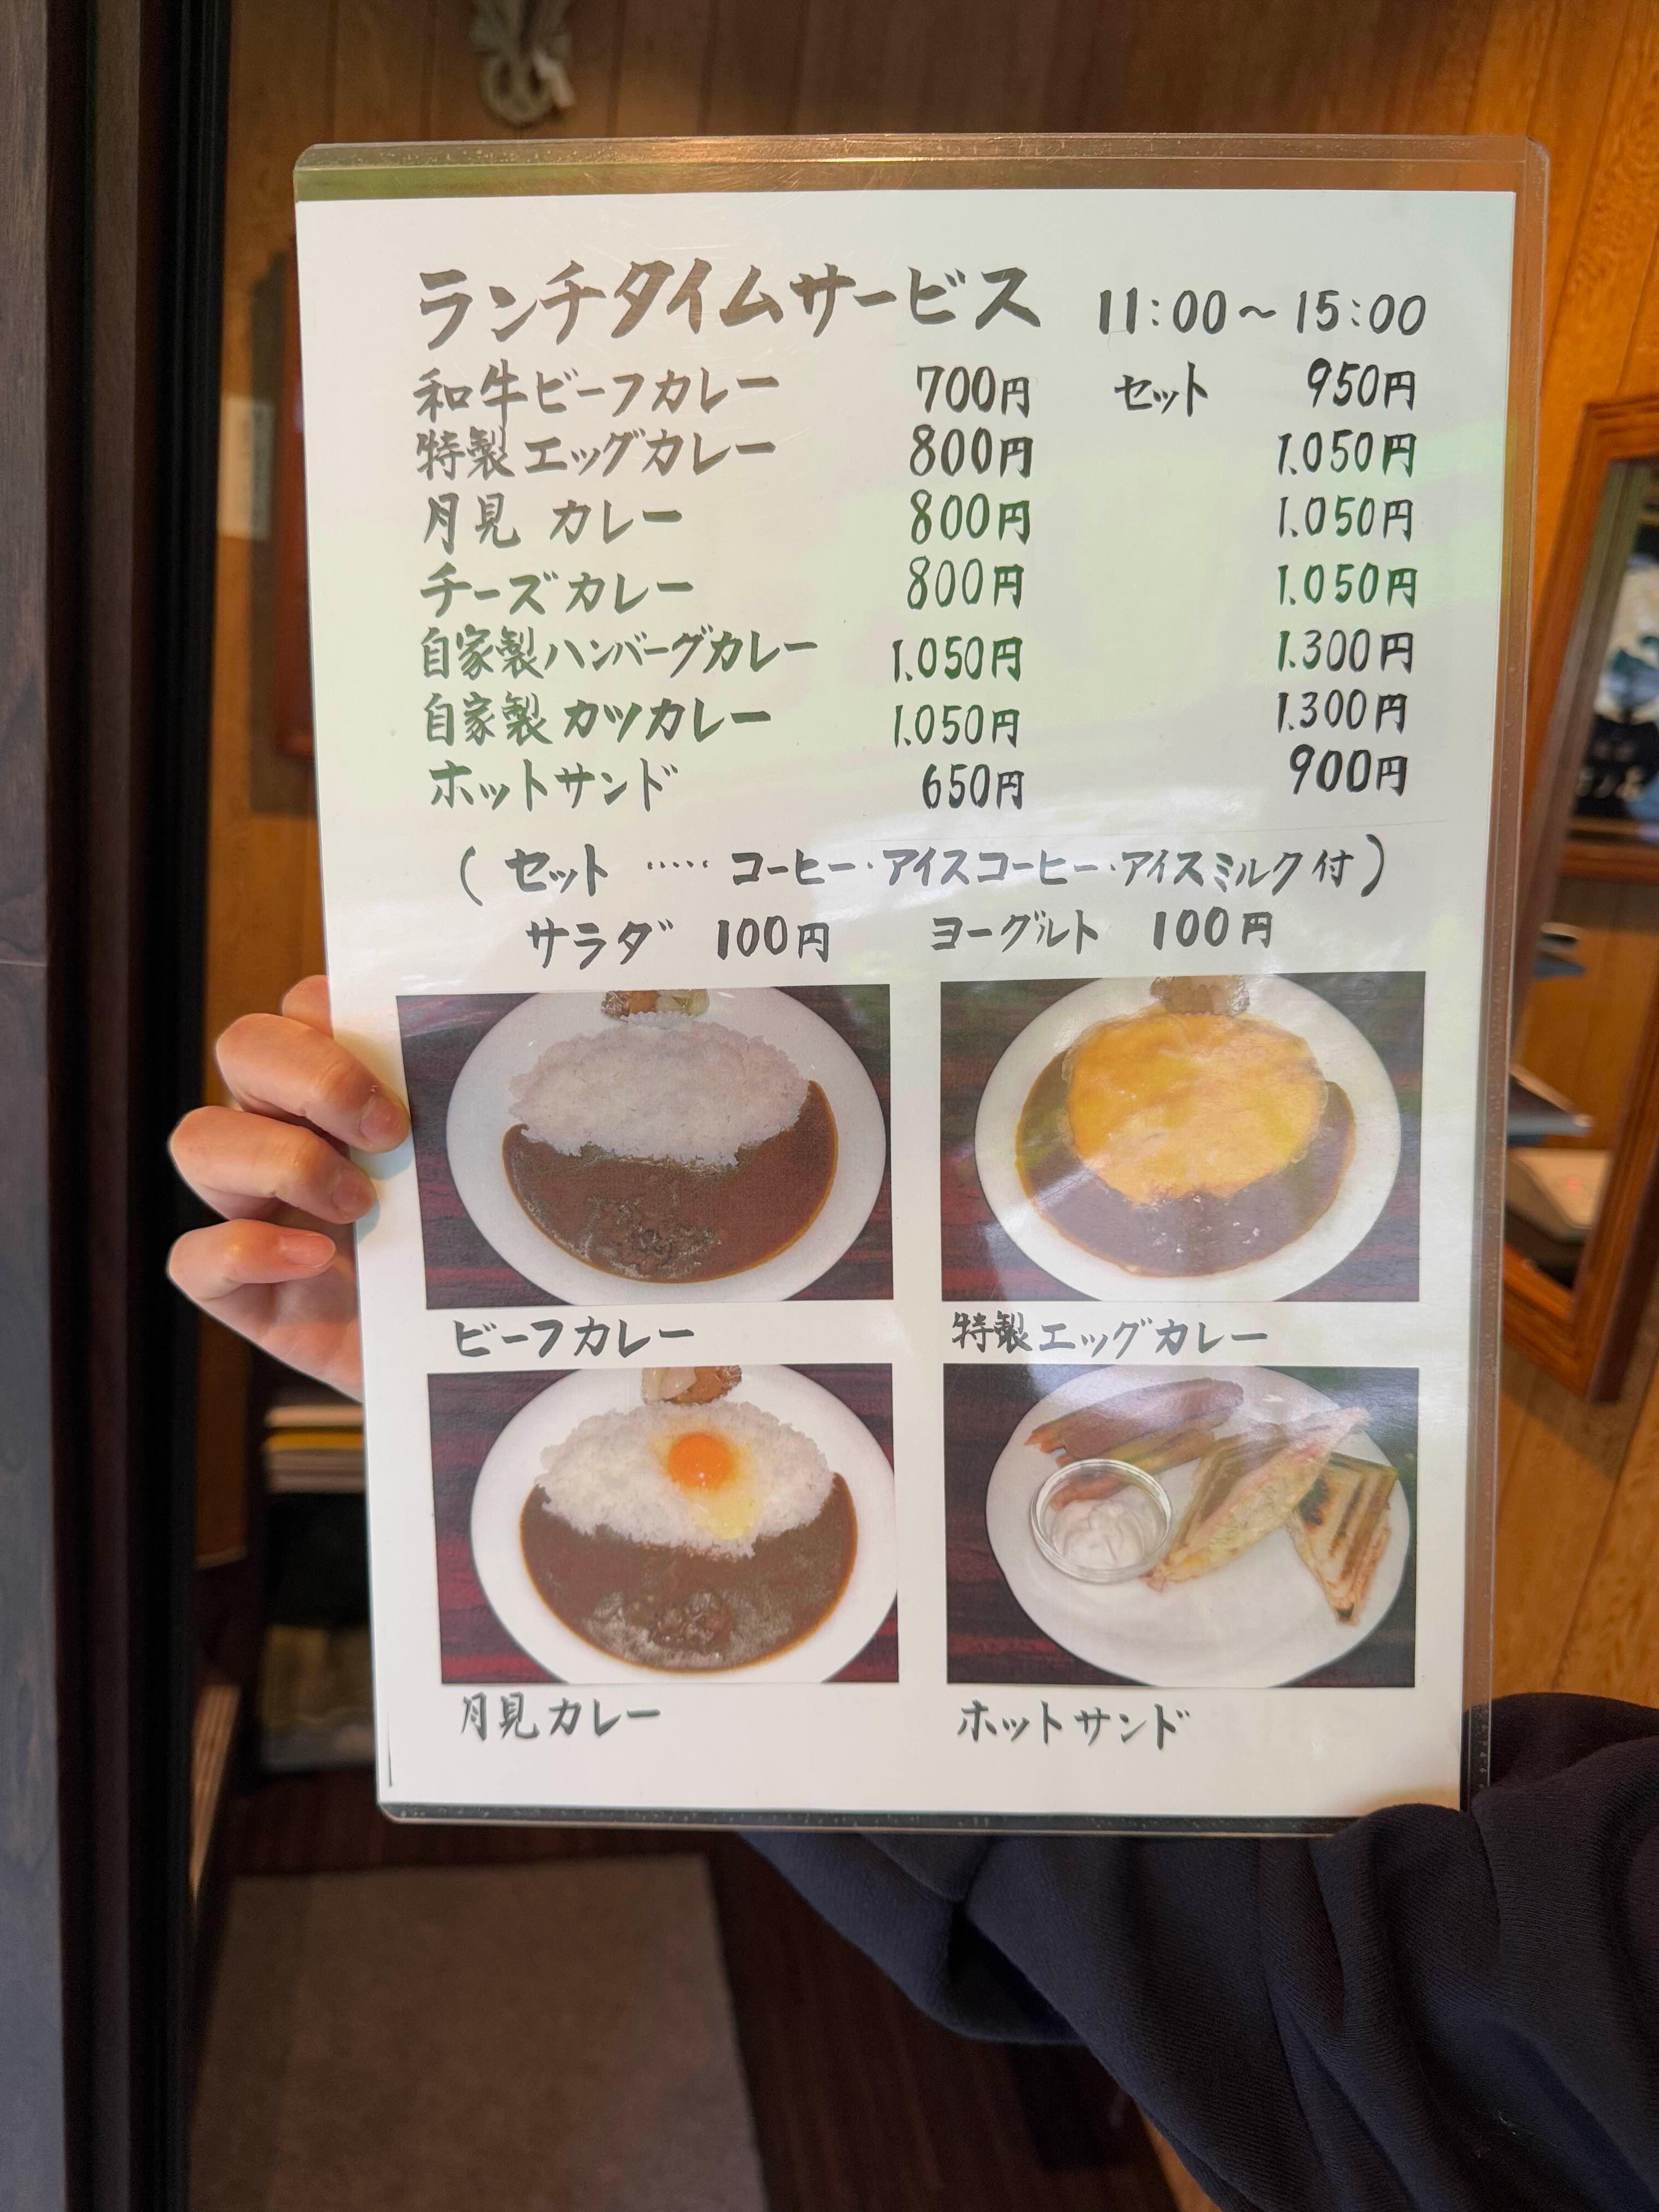 ランチタイムサービス 11:00〜15:00
和牛ビーフカレー 700円 セット 950円
特製エッグカレー 800円 1.050円
月見 カレー 800円 1.050円
チーズカレー 800円 1.050円
自家製ハンバーグカレー 1.050円 1.300円
自家製カツカレー 1.050円 1.300円
ホットサンド 650円 900円
(セット ‥‥‥ コーヒー・アイスコーヒー・アイスミルク付)
サラダ 100円 ヨーグルト 100円
ビーフカレー 特製エッグカレー
月見カレー ホットサンド